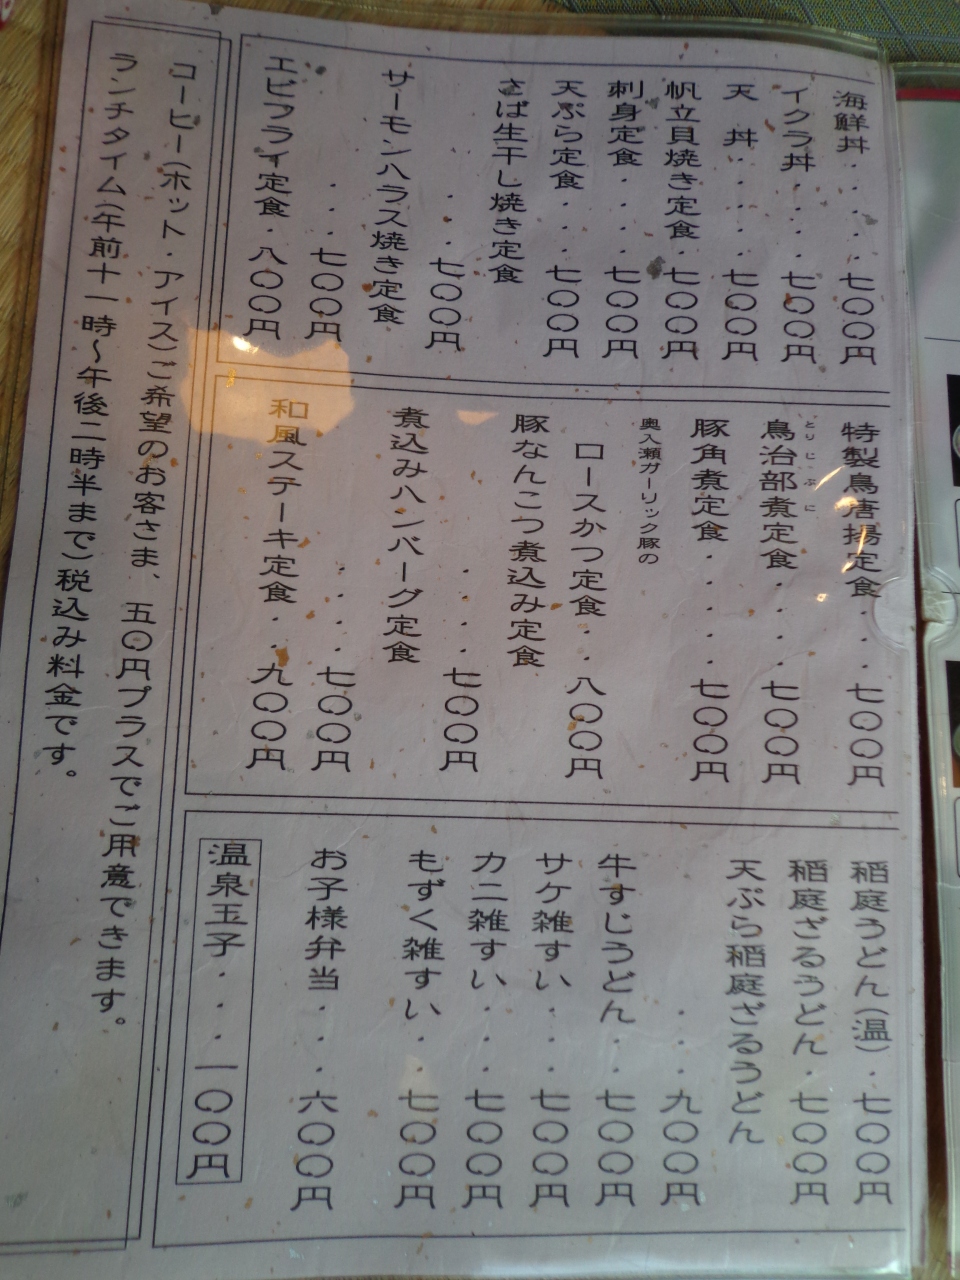 海鮮丼・・・・七〇〇円
イクラ丼・・・・七〇〇円
天丼・・・・七〇〇円
帆立貝焼き定食・七〇〇円
刺身定食・・・・七〇〇円
天ぷら定食・・・七〇〇円
さば生干し焼き定食
・・・七〇〇円
サーモンハラス焼き定食
・・・七〇〇円
エビフライ定食・八〇〇円
特製鳥唐揚定食・・七〇〇円
とりじぶに
鳥治部煮定食・・・七〇〇円
豚角煮定食・・・・七〇〇円
奥入瀬ガーリック豚の
ロースかつ定食・・八〇〇円
豚なんこつ煮込み定食
・・・七〇〇円
煮込みハンバーグ定食
・・・七〇〇円
和風ステーキ定食・・九〇〇円
稲庭うどん(温)・七〇〇円
稲庭ざるうどん・七〇〇円
天ぷら稲庭ざるうどん
・・・九〇〇円
牛すじうどん・・七〇〇円
サケ雑すい・・・七〇〇円
カニ雑すい・・・七〇〇円
もずく雑すい・・七〇〇円
お子様弁当・・・六〇〇円
温泉玉子・・・一〇〇円
コーヒー(ホット・アイス)ご希望のお客さま、五〇円プラスでご用意できます。
ランチタイム(午前十一時～午後二時半まで)税込み料金です。